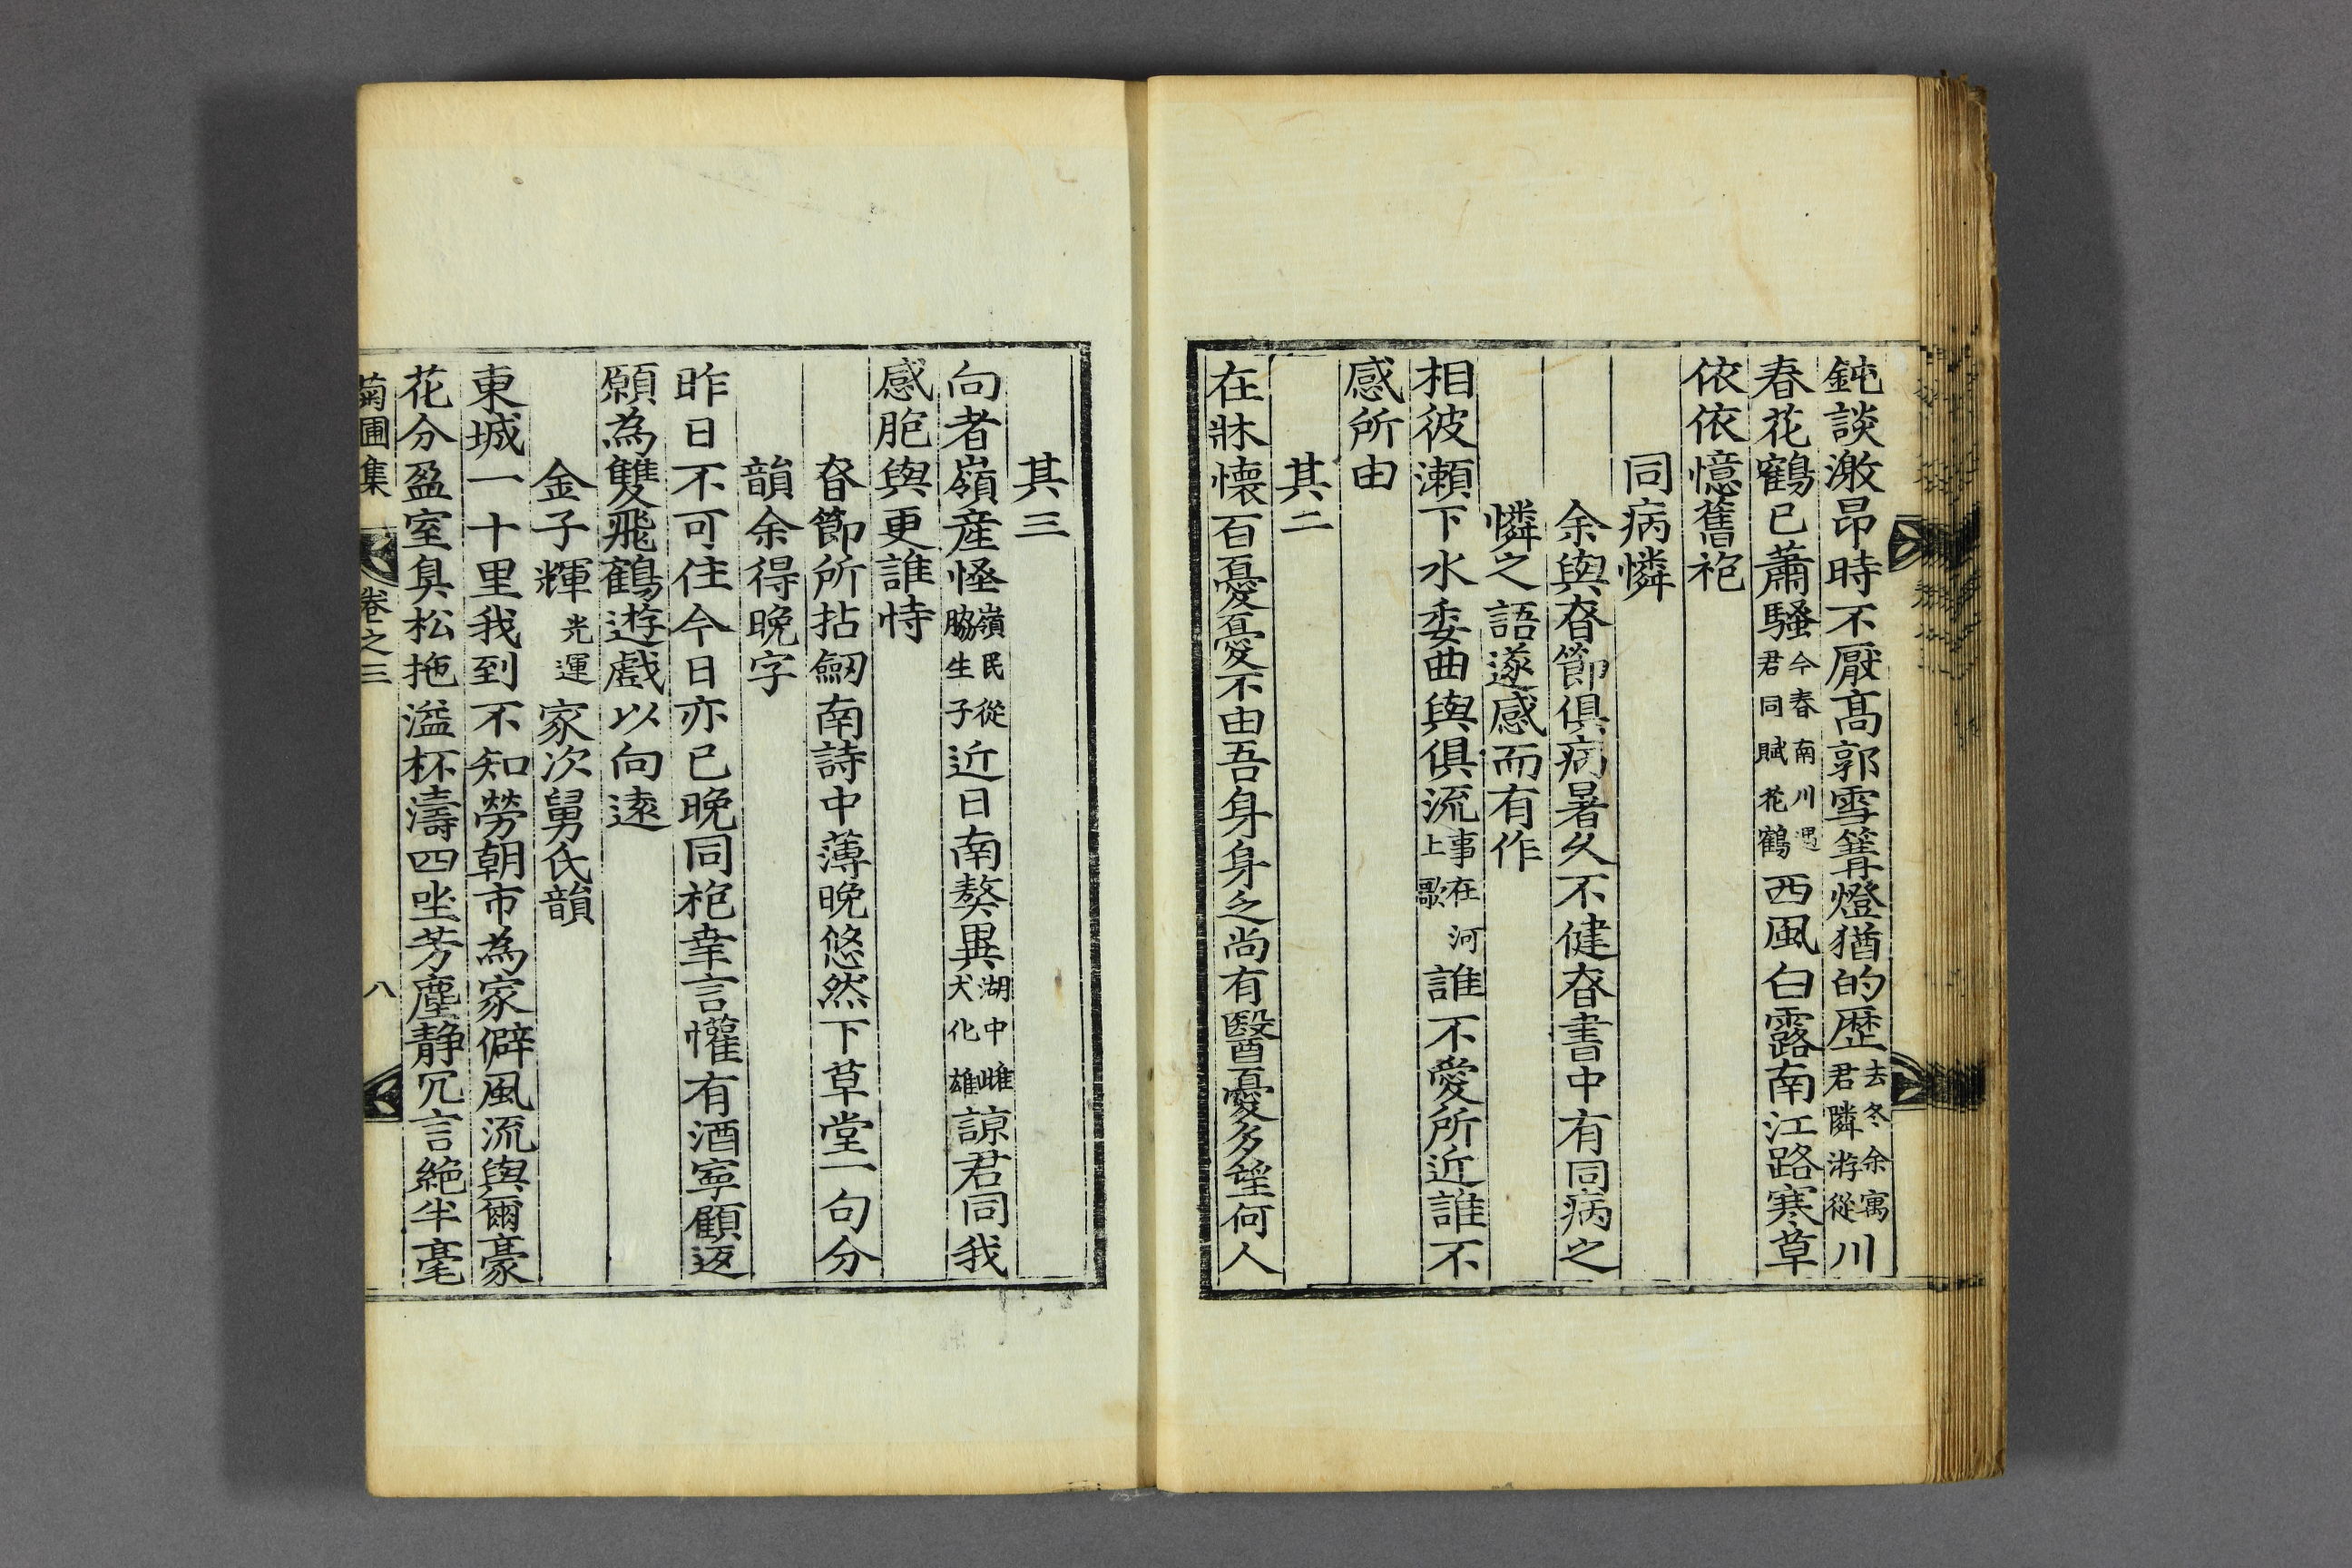 鈍談激昂時不厭高郭雪篝燈猶的歷去冬余寓君隣游從川
春花鶴已蕭騷今春南川遇君同賦花鶴西風白露南江路寒草
依依憶舊袍
同病憐
余與昚節俱病暑久不健昚書中有同病之
憐之語遂感而有作
相彼瀬下水委曲與俱流事在河上歌誰不愛所近誰不
感所由
其二
在牀懷百憂憂不由吾身身乏尚有醫憂多望何人
其三
向者嶺産怪嶺民從脇生子近日南獒異湖中雌犬化雄諒君同我
感胞與更誰恃
昚節所拈劒南詩中薄晚悠然下草堂一句分
韻余得晚字
昨日不可住今日亦已晚同袍幸言懽有酒寧顧返
願為雙飛鶴遊戲以向遠
金子輝光運家次舅氏韻
東城一十里我到不知勞朝市為家僻風流與爾豪
花分盈室臭松拖溢杯濤四坐芳塵静冗言絶半毫
菊圃集 卷之三 八